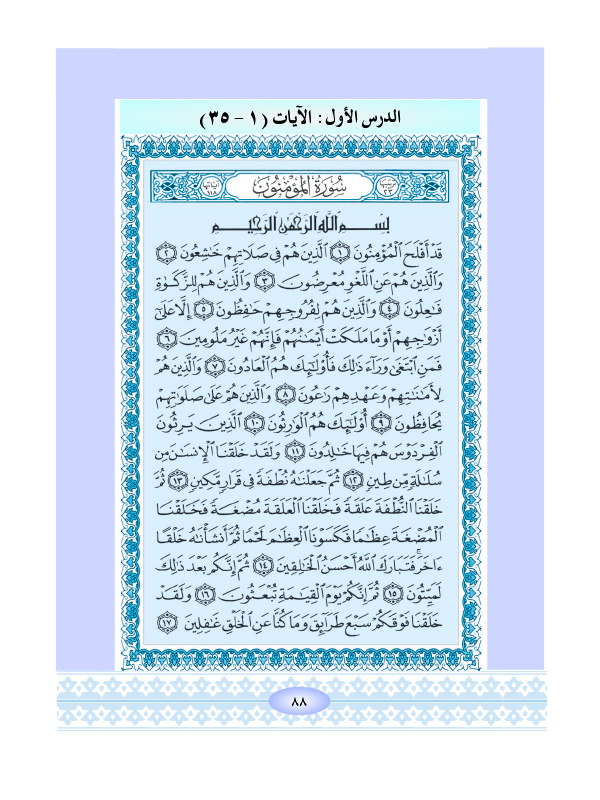 الدرس الأول : الآيات ( ١ - ٣٥ )
ترتيبها ٢٣ سُورَةُ المُؤْمِنُونَ آياتها ١١٨
بِسْمِ اللَّهِ الرَّحْمَٰنِ الرَّحِيمِ
قَدْ أَفْلَحَ الْمُؤْمِنُونَ ١ الَّذِينَ هُمْ فِي صَلَاتِهِمْ خَٰشِعُونَ ٢
وَالَّذِينَ هُمْ عَنِ اللَّغْوِ مُعْرِضُونَ ٣ وَالَّذِينَ هُمْ لِلزَّكَوٰةِ
فَٰعِلُونَ ٤ وَالَّذِينَ هُمْ لِفُرُوجِهِمْ حَٰفِظُونَ ٥ إِلَّا عَلَىٰ
أَزْوَٰجِهِمْ أَوْ مَا مَلَكَتْ أَيْمَٰنُهُمْ فَإِنَّهُمْ غَيْرُ مَلُومِينَ ٦
فَمَنِ ابْتَغَىٰ وَرَاءَ ذَٰلِكَ فَأُولَٰئِكَ هُمُ الْعَادُونَ ٧ وَالَّذِينَ هُمْ
لِأَمَٰنَٰتِهِمْ وَعَهْدِهِمْ رَٰعُونَ ٨ وَالَّذِينَ هُمْ عَلَىٰ صَلَوَٰتِهِمْ
يُحَافِظُونَ ٩ أُولَٰئِكَ هُمُ الْوَٰرِثُونَ ١٠ الَّذِينَ يَرِثُونَ
الْفِرْدَوْسَ هُمْ فِيهَا خَٰلِدُونَ ١١ وَلَقَدْ خَلَقْنَا الْإِنسَٰنَ مِن
سُلَٰلَةٍ مِّن طِينٍ ١٢ ثُمَّ جَعَلْنَٰهُ نُطْفَةً فِي قَرَارٍ مَّكِينٍ ١٣ ثُمَّ
خَلَقْنَا النُّطْفَةَ عَلَقَةً فَخَلَقْنَا الْعَلَقَةَ مُضْغَةً فَخَلَقْنَا
الْمُضْغَةَ عِظَٰمًا فَكَسَوْنَا الْعِظَٰمَ لَحْمًا ثُمَّ أَنشَأْنَٰهُ خَلْقًا
ءَاخَرَ ۚ فَتَبَارَكَ اللَّهُ أَحْسَنُ الْخَٰلِقِينَ ١٤ ثُمَّ إِنَّكُم بَعْدَ ذَٰلِكَ
لَمَيِّتُونَ ١٥ ثُمَّ إِنَّكُمْ يَوْمَ الْقِيَٰمَةِ تُبْعَثُونَ ١٦ وَلَقَدْ
خَلَقْنَا فَوْقَكُمْ سَبْعَ طَرَائِقَ وَمَا كُنَّا عَنِ الْخَلْقِ غَٰفِلِينَ ١٧
٨٨